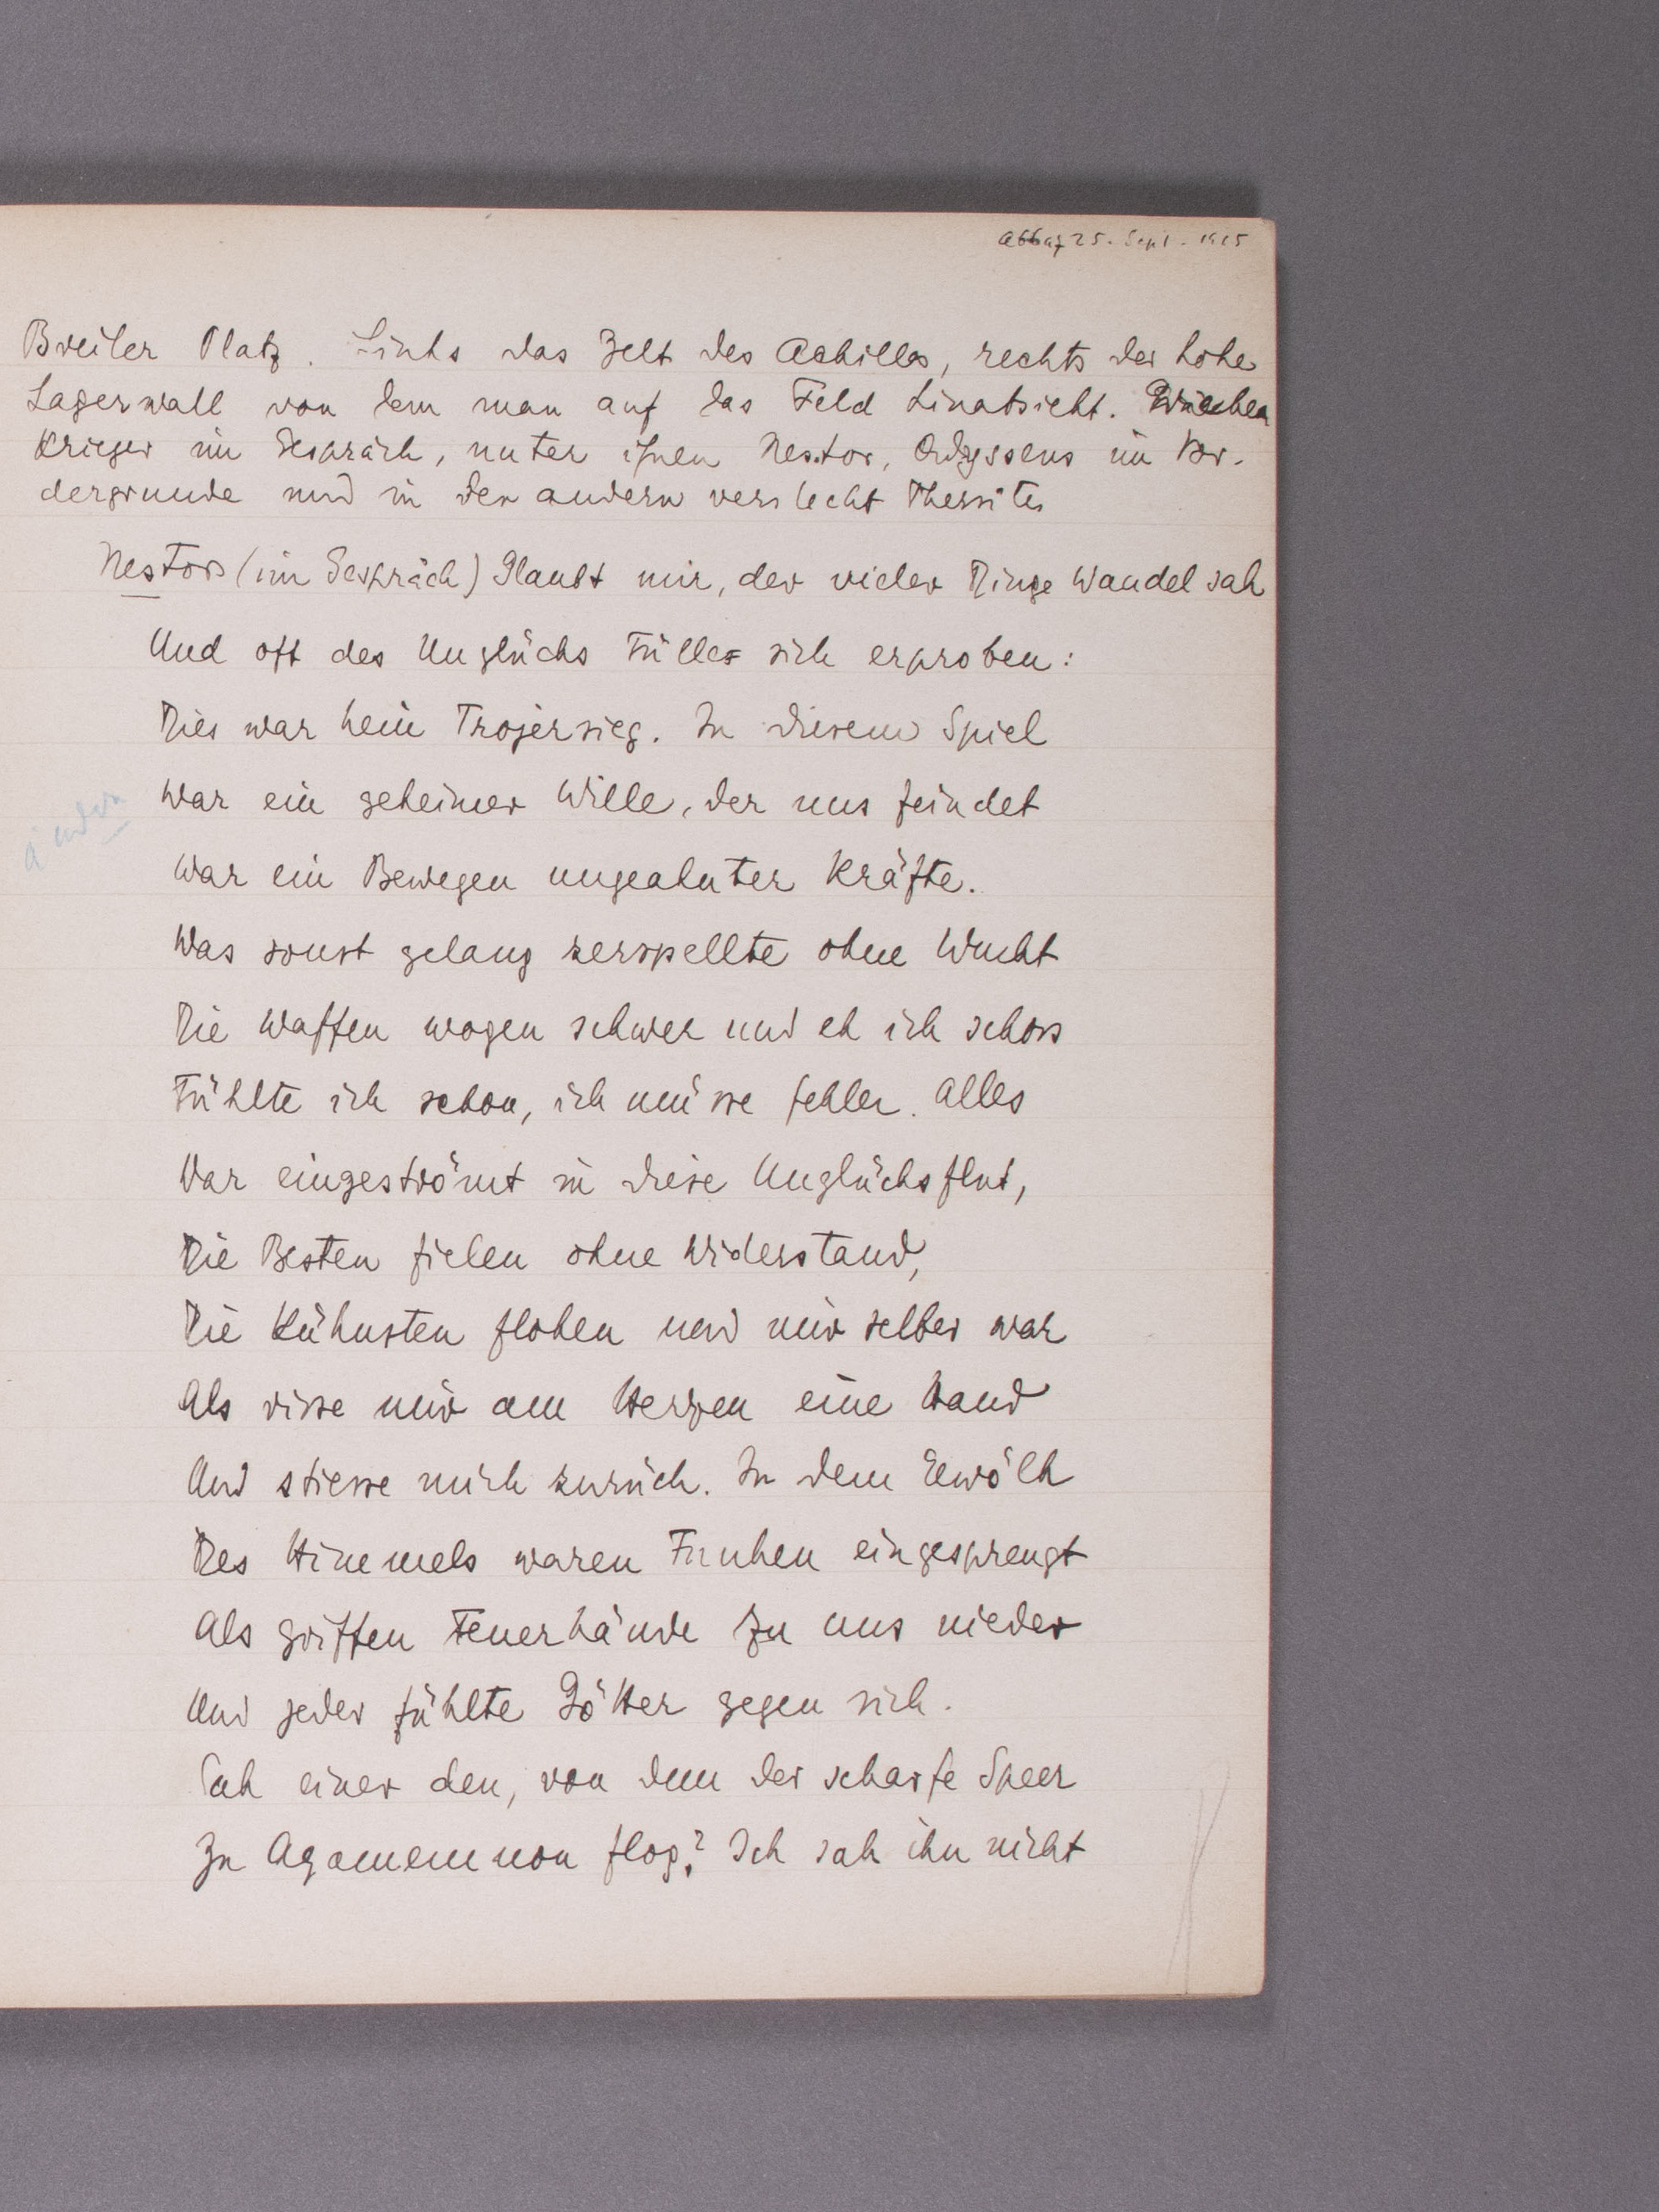 25. Sept. 1905
Breiter Platz. Links das Zelt des Achilles, rechts der hohe
Lagerwall von dem man auf das Feld hinabsieht.
Krieger im Gespräch, unter ihnen Nestor, Odysseus im Vor-
dergrunde und in den andern versteckt Thersites
Nestor (im Gespräch) Glaubt mir, der vieler Dinge Wandel sah
Und oft des Unglücks Fülle sich erproben:
Dies war kein Trojersieg. In diesem Spiel
War ein geheimer Wille, der uns feindet
ändern
War ein Bewegen ungeahnter Kräfte.
Was sonst gelang zerspellte ohne Wucht
Die Waffen wogen schwer und eh ich schoss
Fühlte ich schon, ich müsse fehlen. Alles
War eingeströmt in diese Unglücksflut,
Die Besten fielen ohne Widerstand,
Die Kühnsten flohen und mir selber war
Als risse mir am Herzen eine Hand
Und stiesse mich zurück. In dem Gewölk
Des Himmels waren Funken eingesprengt
Als griffen Feuerhände zu uns nieder
Und jeder fühlte Götter gegen sich.
Sah einer den, von dem der scharfe Speer
Zu Agamemnon flog? Ich sah ihn nicht